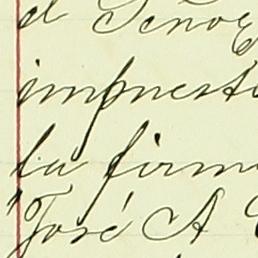 el Señor
impuesto
la firm
"José A